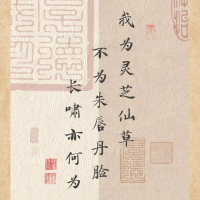 我为灵芝仙草
不为朱唇丹脸
长啸亦何为